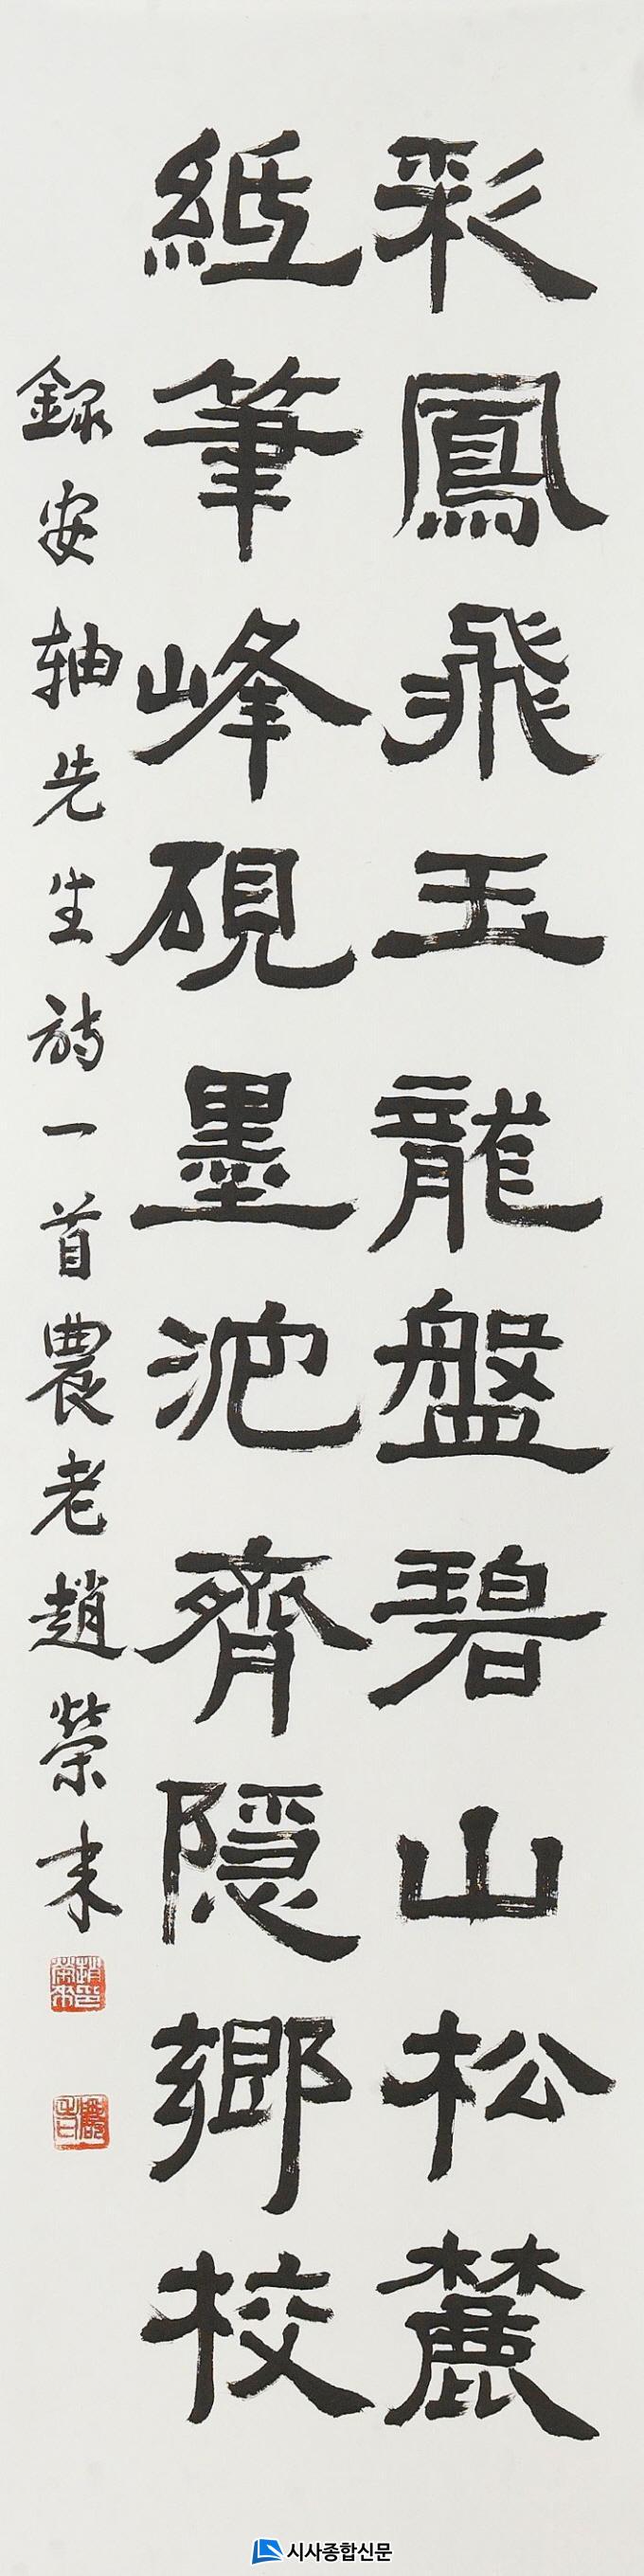 彩鳳飛玉龍盤碧山松麓
紙筆峰硯墨池齊隱鄉校
錄安軸先生詩一首農老趙榮來
시사종합신문